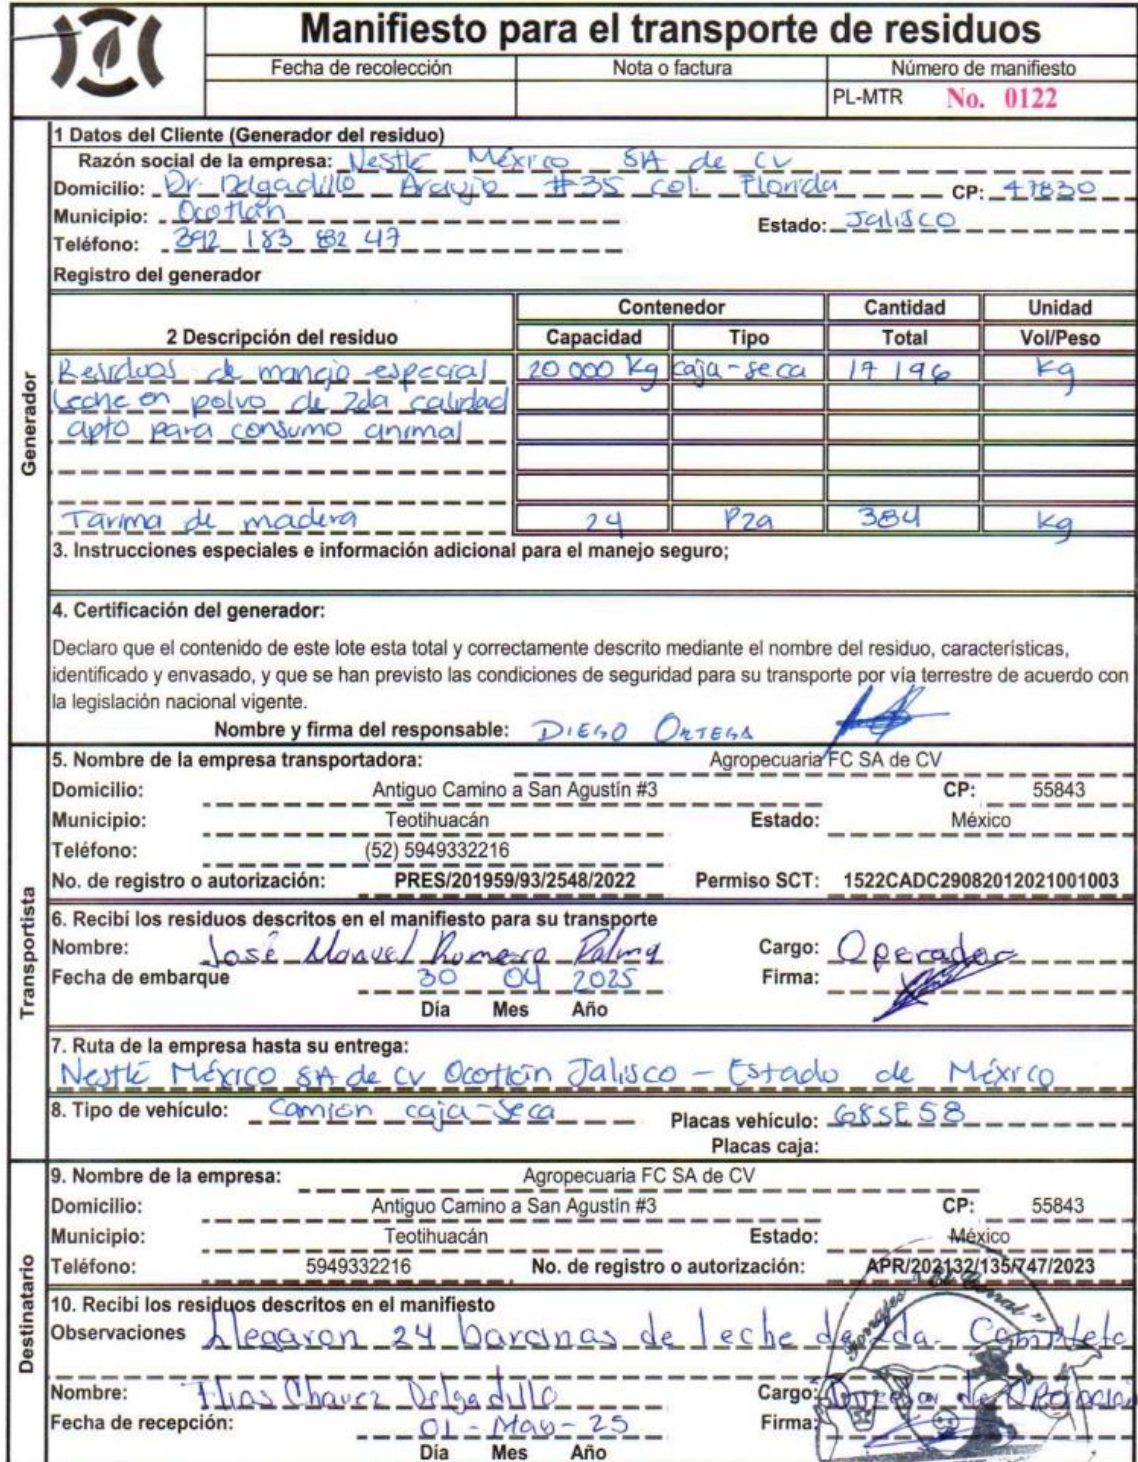 Manifiesto para el transporte de residuos
Fecha de recolección Nota o factura Número de manifiesto
PL-MTR No. 0122
Generador
1 Datos del Cliente (Generador del residuo)
Razón social de la empresa: Nestlé México SA de CV
Domicilio: Dr. Delgadillo Araujo #35 col. Florida CP: 47830
Municipio: Ocotlán Estado: Jalisco
Teléfono: 392 183 82 47
Registro del generador
Contenedor Cantidad Unidad
2 Descripción del residuo Capacidad Tipo Total Vol/Peso
Residuos de manejo especial 20 000 Kg caja-seca 17 196 Kg
Leche en polvo de 2da calidad
apto para consumo animal
Tarima de madera 24 Pza 384 Kg
3. Instrucciones especiales e información adicional para el manejo seguro;
4. Certificación del generador:
Declaro que el contenido de este lote esta total y correctamente descrito mediante el nombre del residuo, características,
identificado y envasado, y que se han previsto las condiciones de seguridad para su transporte por vía terrestre de acuerdo con
la legislación nacional vigente.
Nombre y firma del responsable: DIEGO ORTEGA
Transportista
5. Nombre de la empresa transportadora: Agropecuaria FC SA de CV
Domicilio: Antiguo Camino a San Agustín #3 CP: 55843
Municipio: Teotihuacán Estado: México
Teléfono: (52) 5949332216
No. de registro o autorización: PRES/201959/93/2548/2022 Permiso SCT: 1522CADC29082012021001003
6. Recibí los residuos descritos en el manifiesto para su transporte
Nombre: José Manuel Romero Palma Cargo: Operador
Fecha de embarque 30 04 2025 Firma:
Día Mes Año
7. Ruta de la empresa hasta su entrega:
Nestlé México SA de CV Ocotlán Jalisco - Estado de México
8. Tipo de vehículo: Camión caja-seca Placas vehículo: 68SE58
Placas caja:
Destinatario
9. Nombre de la empresa: Agropecuaria FC SA de CV
Domicilio: Antiguo Camino a San Agustín #3 CP: 55843
Municipio: Teotihuacán Estado: México
Teléfono: 5949332216 No. de registro o autorización: APR/202132/135/747/2023
Forrajes "El Corral"
10. Recibí los residuos descritos en el manifiesto
Observaciones Llegaron 24 barcinas de leche de 2da. Completo
Nombre: Elias Chavez Delgadillo Cargo: Director de Operación
Fecha de recepción: 01 - May - 25 Firma:
Día Mes Año